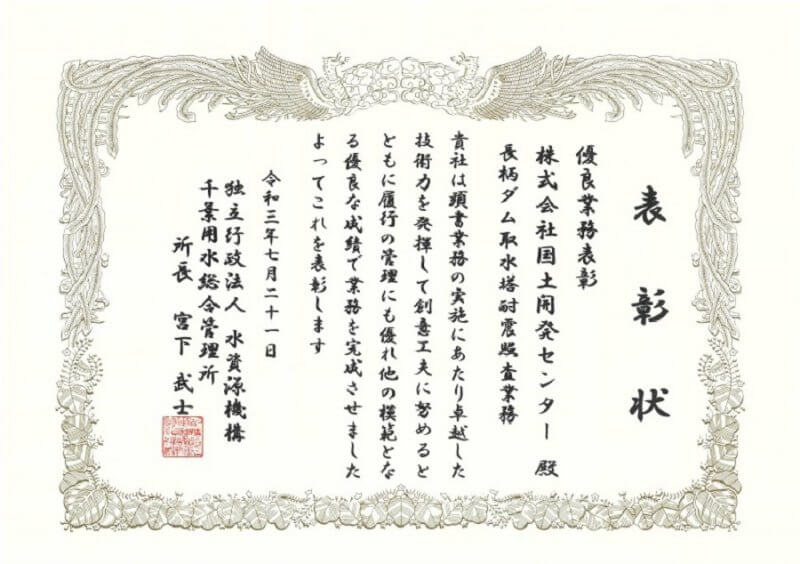 表彰状
優良業務表彰
株式会社国土開発センター 殿
長柄ダム取水塔耐震照査業務
貴社は頭書業務の実施にあたり卓越した
技術力を発揮して創意工夫に努めると
ともに履行の管理にも優れ他の模範とな
る優良な成績で業務を完成させました
よってこれを表彰します
令和三年七月二十一日
独立行政法人 水資源機構
千葉用水総合管理所
所長 宮下 武士